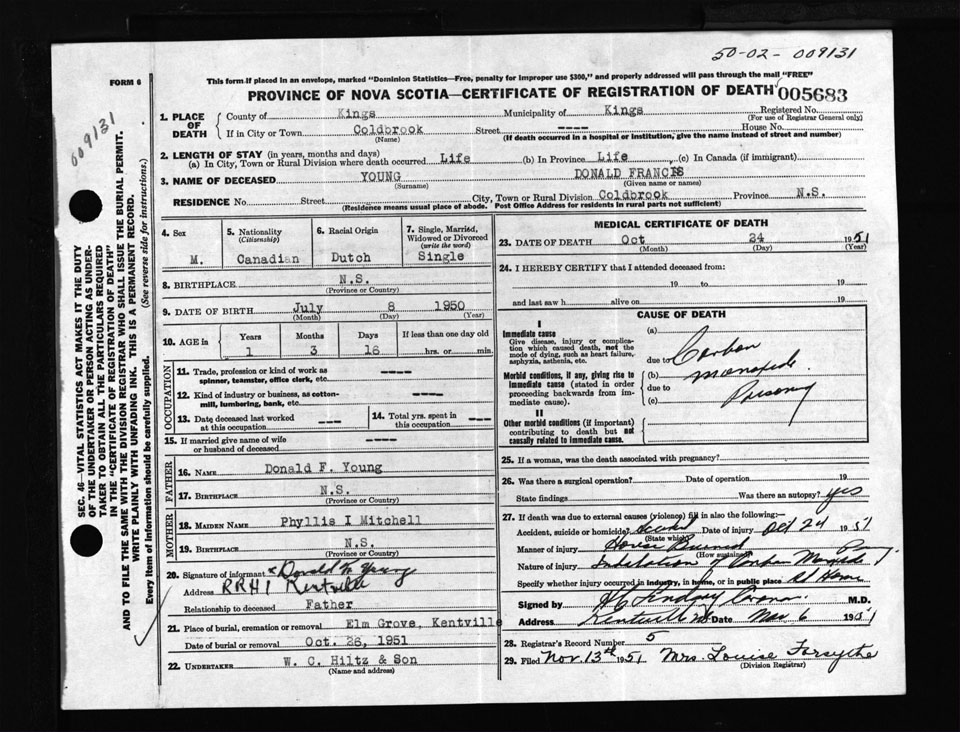 50-02- 009131
FORM 6
This form if placed in an envelope, marked "Dominion Statistics—Free, penalty for improper use $300," and properly addressed will pass through the mail "FREE"
PROVINCE OF NOVA SCOTIA—CERTIFICATE OF REGISTRATION OF DEATH 005683
009131
SEC. 46—VITAL STATISTICS ACT MAKES IT THE DUTY
OF THE UNDERTAKER OR PERSON ACTING AS UNDER-
TAKER TO OBTAIN ALL THE PARTICULARS REQUIRED
IN THE "CERTIFICATE OF REGISTRATION OF DEATH"
AND TO FILE THE SAME WITH THE DIVISION REGISTRAR WHO SHALL ISSUE THE BURIAL PERMIT.
WRITE PLAINLY WITH UNFADING INK. THIS IS A PERMANENT RECORD.
Every item of Information should be carefully supplied. (See reverse side for instructions.)
1. PLACE OF DEATH
County of Kings Municipality of Kings Registered No.
(For use of Registrar General only)
If in City or Town Coldbrook Street ---- House No.
(Name) (If death occurred in a hospital or institution, give the name instead of street and number)
2. LENGTH OF STAY (in years, months and days)
(a) In City, Town or Rural Division where death occurred Life (b) In Province Life (c) In Canada (if immigrant)
3. NAME OF DECEASED YOUNG DONALD FRANCIS
(Surname) (Given name or names)
RESIDENCE No. Street City, Town or Rural Division Coldbrook Province N.S.
(Residence means usual place of abode. Post Office Address for residents in rural parts not sufficient)
4. Sex 5. Nationality (Citizenship) 6. Racial Origin 7. Single, Married, Widowed or Divorced (write the word)
M. Canadian Dutch Single
8. BIRTHPLACE N.S.
(Province or Country)
9. DATE OF BIRTH July 8 1950
(Month) (Day) (Year)
10. AGE in Years Months Days If less than one day old
1 3 16 hrs. or min.
OCCUPATION
11. Trade, profession or kind of work as spinner, teamster, office clerk, etc. ----
12. Kind of industry or business, as cotton-mill, lumbering, bank, etc. ----
13. Date deceased last worked at this occupation --- 14. Total yrs. spent in this occupation ---
15. If married give name of wife or husband of deceased ----
FATHER
16. NAME Donald F. Young
17. BIRTHPLACE N.S.
(Province or Country)
MOTHER
18. MAIDEN NAME Phyllis I Mitchell
19. BIRTHPLACE N.S.
(Province or Country)
20. Signature of informant x Donald Young
Address RR#1 Kentville
Relationship to deceased Father
21. Place of burial, cremation or removal Elm Grove, Kentville
Date of burial or removal Oct. 26, 1951
22. UNDERTAKER W. C. Hiltz & Son
(Name and address)
MEDICAL CERTIFICATE OF DEATH
23. DATE OF DEATH Oct 24 1951
(Month) (Day) (Year)
24. I HEREBY CERTIFY that I attended deceased from:
19 to 19
and last saw h alive on 19
CAUSE OF DEATH
I
Immediate cause
Give disease, injury or complication which caused death, not the mode of dying, such as heart failure, asphyxia, asthenia, etc.
Morbid conditions, if any, giving rise to immediate cause (stated in order proceeding backwards from immediate cause).
II
Other morbid conditions (if important) contributing to death but not causally related to immediate cause.
(a)
due to Carbon
(b) Monoxide
due to
(c) Poisoning
25. If a woman, was the death associated with pregnancy?
26. Was there a surgical operation? Date of operation 19
State findings Was there an autopsy? yes
27. If death was due to external causes (violence) fill in also the following:—
Accident, suicide or homicide? Accident Date of injury Oct 24 1951
(State which)
Manner of injury House Burned
(How sustained)
Nature of injury of Carbon Monoxide
Specify whether injury occurred in industry, in home, or in public place At Home
Signed by H C Lindsay M.D.
Address Kentville NS Date Nov 6 1951
28. Registrar's Record Number 5
29. Filed Nov. 13th 1951 Mrs. Louise Forsythe
(Division Registrar)